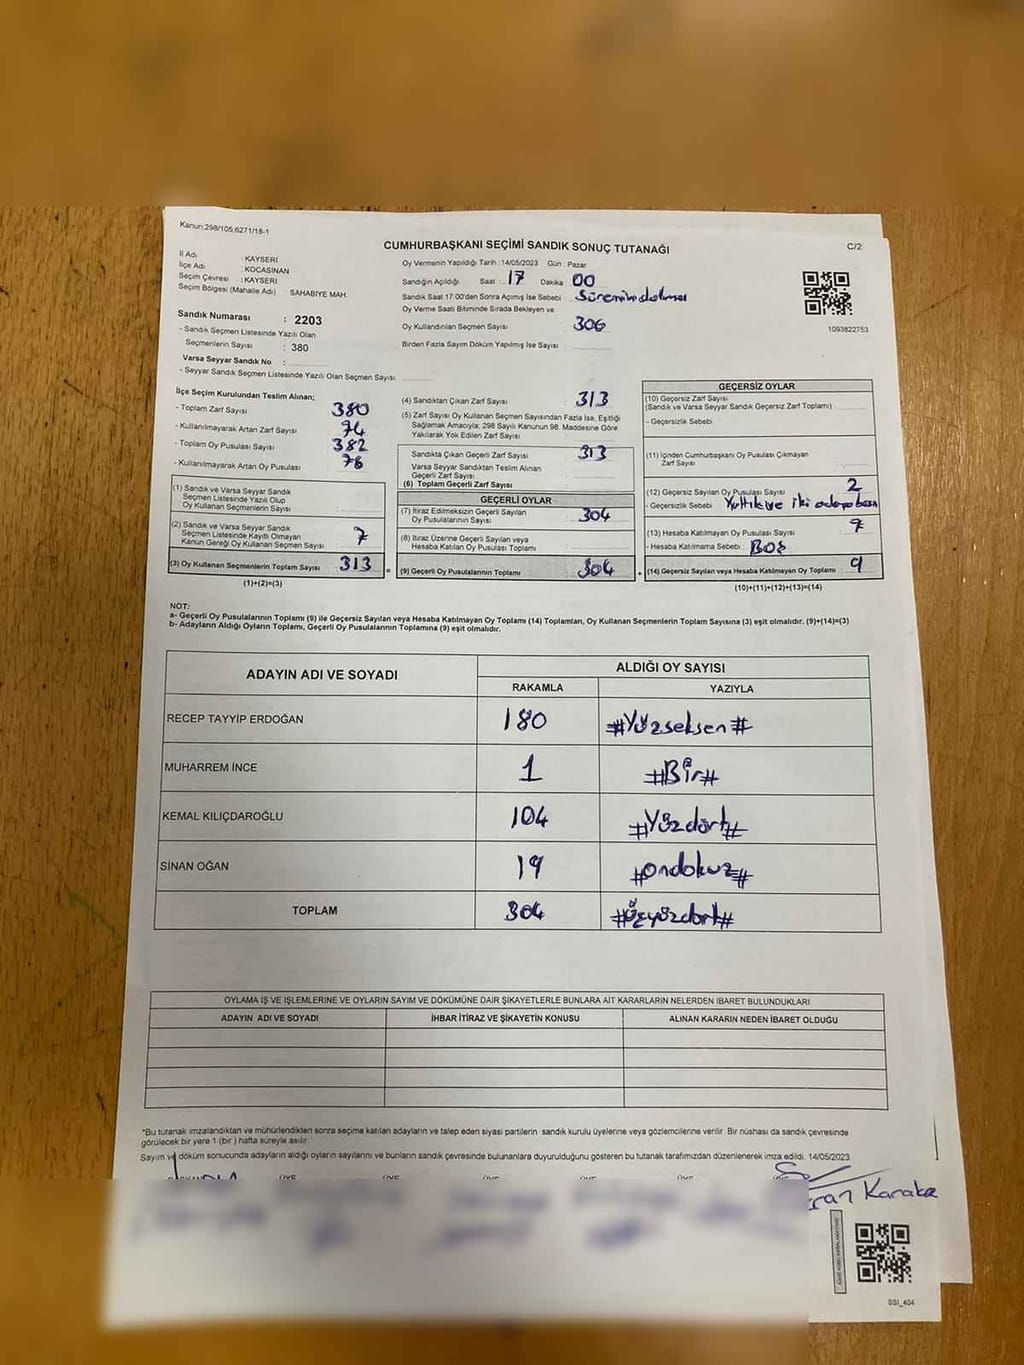 Kanun;298/105;6271/18-1
CUMHURBAŞKANI SEÇİMİ SANDIK SONUÇ TUTANAĞI
C/2
İl Adı : KAYSERİ
İlçe Adı : KOCASİNAN
Seçim Çevresi : KAYSERİ
Seçim Bölgesi (Mahalle Adı) : SAHABİYE MAH.
Sandık Numarası : 2203
- Sandık Seçmen Listesinde Yazılı Olan
Seçmenlerin Sayısı : 380
Varsa Seyyar Sandık No :
- Seyyar Sandık Seçmen Listesinde Yazılı Olan Seçmen Sayısı
Oy Vermenin Yapıldığı Tarih : 14/05/2023 Gün : Pazar
Sandığın Açıldığı Saat : 17 Dakika 00
Sandık Saat 17.00'den Sonra Açımış İse Sebebi
Oy Verme Saati Bitiminde Sırada Bekleyen ve
Oy Kullandırılan Seçmen Sayısı 306
Birden Fazla Sayım Döküm Yapılmış İse Sayısı
1093822753
İlçe Seçim Kurulundan Teslim Alınan;
- Toplam Zarf Sayısı 380
- Kullanılmayarak Artan Zarf Sayısı 74
- Toplam Oy Pusulası Sayısı 382
- Kullanılmayarak Artan Oy Pusulası 76
(1) Sandık ve Varsa Seyyar Sandık
Seçmen Listesinde Yazılı Olup
Oy Kullanan Seçmenlerin Sayısı
(2) Sandık ve Varsa Seyyar Sandık
Seçmen Listesinde Kayıtlı Olmayan
Kanun Gereği Oy Kullanan Seçmen Sayısı 7
(3) Oy Kullanan Seçmenlerin Toplam Sayısı 313
(1)+(2)=(3)
(4) Sandıktan Çıkan Zarf Sayısı 313
(5) Zarf Sayısı Oy Kullanan Seçmen Sayısından Fazla İse, Eşitliği
Sağlamak Amacıyla; 298 Sayılı Kanunun 98. Maddesine Göre
Yakılarak Yok Edilen Zarf Sayısı
Sandıkta Çıkan Geçerli Zarf Sayısı 313
Varsa Seyyar Sandıktan Teslim Alınan
Geçerli Zarf Sayısı
(6) Toplam Geçerli Zarf Sayısı
GEÇERLİ OYLAR
(7) İtiraz Edilmeksizin Geçerli Sayılan
Oy Pusulalarının Sayısı 304
(8) İtiraz Üzerine Geçerli Sayılan veya
Hesaba Katılan Oy Pusulası Toplamı
(9) Geçerli Oy Pusulalarının Toplamı 304
GEÇERSİZ OYLAR
(10) Geçersiz Zarf Sayısı
(Sandık ve Varsa Seyyar Sandık Geçersiz Zarf Toplamı)
- Geçersizlik Sebebi
(11) İçinden Cumhurbaşkanı Oy Pusulası Çıkmayan
Zarf Sayısı
(12) Geçersiz Sayılan Oy Pusulası Sayısı 2
- Geçersizlik Sebebi
(13) Hesaba Katılmayan Oy Pusulası Sayısı 7
- Hesaba Katılmama Sebebi BOŞ
(14) Geçersiz Sayılan veya Hesaba Katılmayan Oy Toplamı 9
(10)+(11)+(12)+(13)=(14)
NOT:
a- Geçerli Oy Pusulalarının Toplamı (9) ile Geçersiz Sayılan veya Hesaba Katılmayan Oy Toplamı (14) Toplamları, Oy Kullanan Seçmenlerin Toplam Sayısına (3) eşit olmalıdır. (9)+(14)=(3)
b- Adayların Aldığı Oyların Toplamı, Geçerli Oy Pusulalarının Toplamına (9) eşit olmalıdır.
ADAYIN ADI VE SOYADI ALDIĞI OY SAYISI
RAKAMLA YAZIYLA
RECEP TAYYİP ERDOĞAN 180 #Yüzseksen#
MUHARREM İNCE 1 #Bir#
KEMAL KILIÇDAROĞLU 104 #Yüzdört#
SİNAN OĞAN 19 #ondokuz#
TOPLAM 304 #Üçyüzdört#
OYLAMA İŞ VE İŞLEMLERİNE VE OYLARIN SAYIM VE DÖKÜMÜNE DAİR ŞİKAYETLERLE BUNLARA AİT KARARLARIN NELERDEN İBARET BULUNDUKLARI
ADAYIN ADI VE SOYADI İHBAR İTİRAZ VE ŞİKAYETİN KONUSU ALINAN KARARIN NEDEN İBARET OLDUĞU
*Bu tutanak imzalandıktan ve mühürlendikten sonra seçime katılan adayların ve talep eden siyasi partilerin sandık kurulu üyelerine veya gözlemcilerine verilir. Bir nüshası da sandık çevresinde
görülecek bir yere 1 (bir ) hafta süreyle asılır.
Sayım ve döküm sonucunda adayların aldığı oyların sayılarını ve bunların sandık çevresinde bulunanlara duyurulduğunu gösteren bu tutanak tarafımızdan düzenlenerek imza edildi. 14/05/2023
ÜYE ÜYE ÜYE ÜYE ÜYE
SSI_404